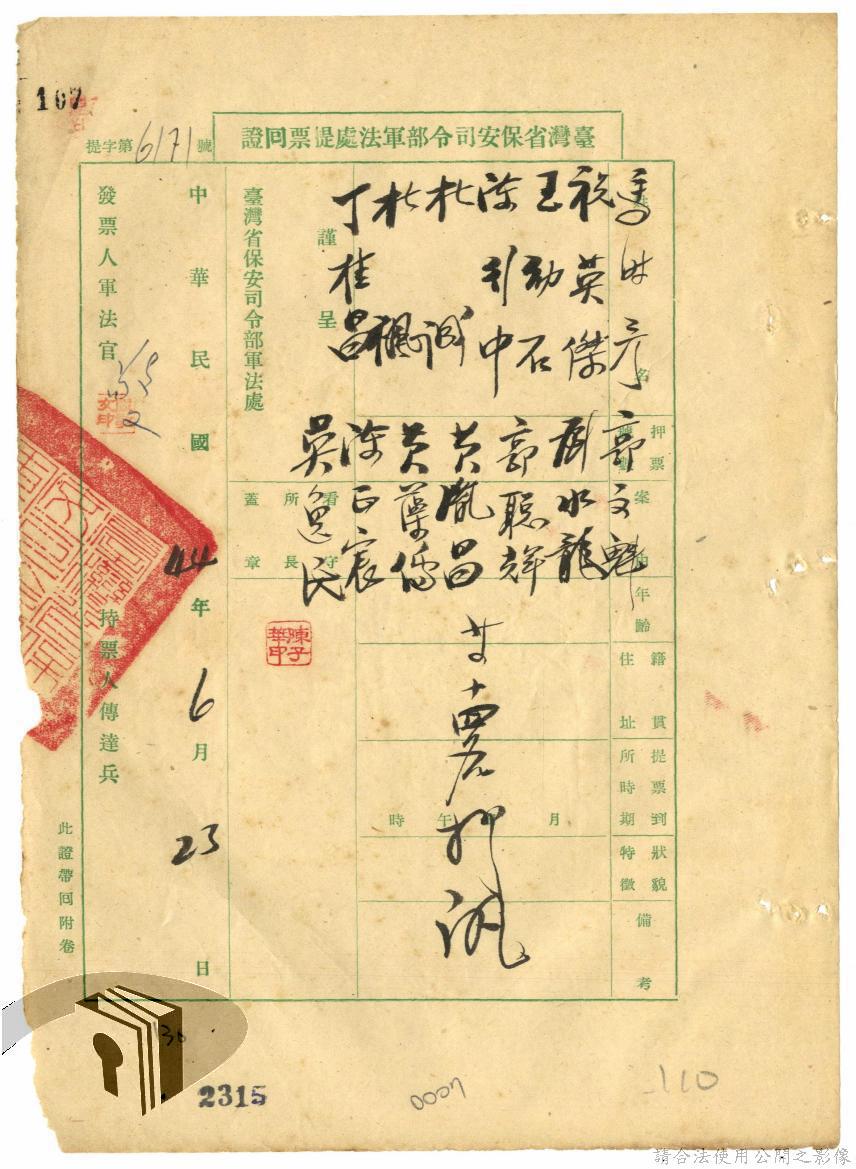 107
臺灣省保安司令部軍法處提票回證
提字第6171號
姓名
押票號數
案由
年齡
籍貫
住址
提票到所時期
月
午
時
狀貌特徵
備考
祝英傑
王勁石
陳引中
杜誠
杜楓
丁桂昌
郭文魁
周水龍
郭聰輝
黃胤昌
黃葉儒
陳正宸
吳逸民
謹呈
臺灣省保安司令部軍法處
看守所長
蓋章
陳子華印
中華民國44年6月23日
發票人軍法官
持票人傳達兵
此證帶回附卷
30
2315
0007
110
請合法使用公開之影像